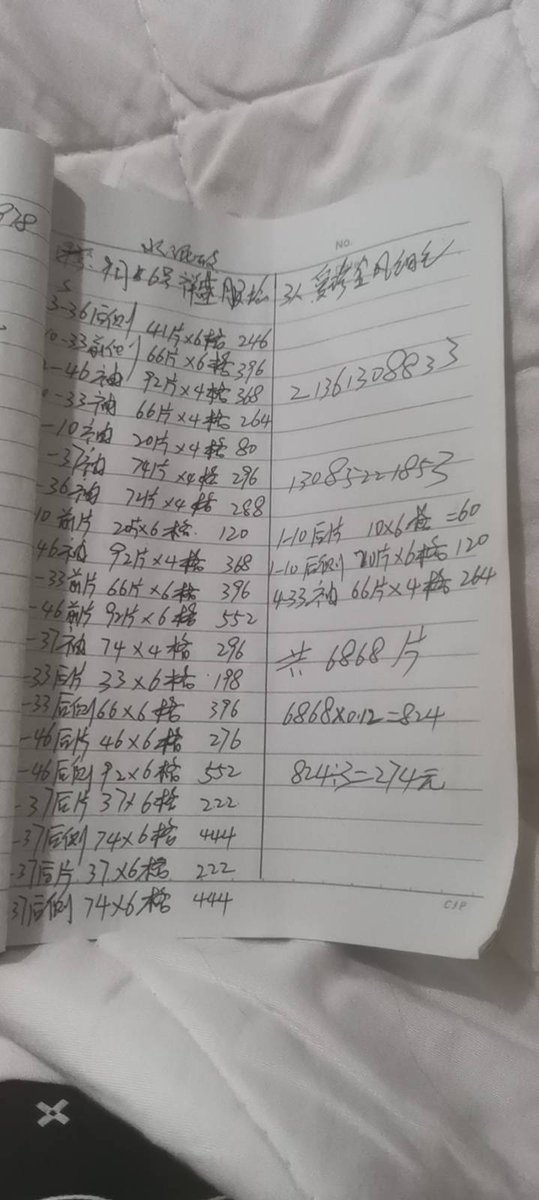 978
3-36后侧 41片×6格 246
0-33前侧 66片×6格 396
-46袖 92片×4格 368
-33袖 66片×4格 264
-10袖 20片×4格 80
-37袖 74片×4格 296
-36袖 72片×4格 288
10前片 20片×6格 120
46袖 92片×4格 368
-33前片 66片×6格 396
-46前片 92片×6格 552
-37袖 74×4格 296
-33后片 33×6格 198
-33后侧 66×6格 396
-46后片 46×6格 276
-46后侧 92×6格 552
-37后片 37×6格 222
-37后侧 74×6格 444
-37后片 37×6格 222
37后侧 74×6格 444
NO.
3人
21361308833
13085221853
1-10后片 10×6格=60
1-10后侧 20片×6格 120
433袖 66片×4格 264
共 6868片
6868×0.12=824
824÷3=274元